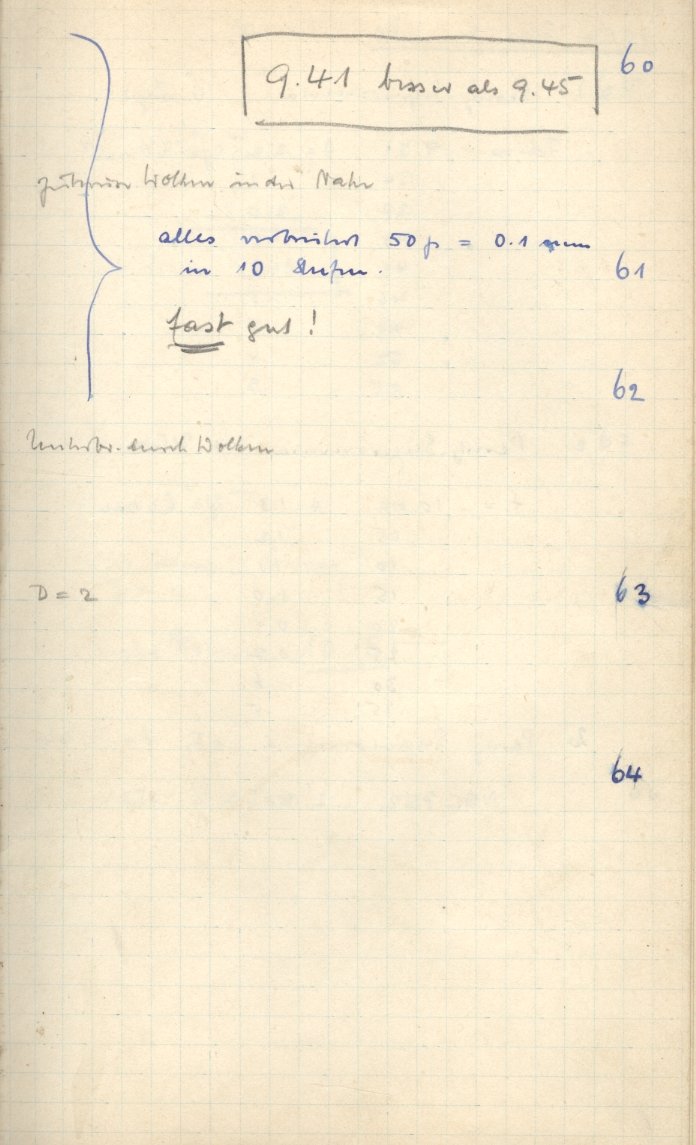 60
9.41 besser als 9.45
zeitweise Wolken in der Nähe
alles verbreitert 50 µ = 0.1 mm
in 10 Stufen.
61
fast gut!
62
durch Wolken
D = 2
63
64